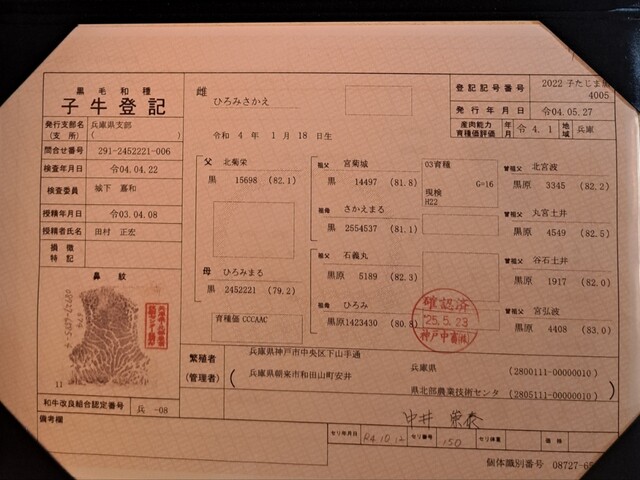 黒毛和種
子牛登記
雌
ひろみさかえ
令和 4年 1月18日生
登記記号番号 2022 子たじま黒
4005
発行年月日 令04.05.27
産肉能力 育種価評価 年月 令4.1 地域 兵庫
発行支部名 (支所) 兵庫県支部
( )
問合せ番号 291-2452221-006
検査年月日 令04.04.22
検査委員 城下 嘉和
授精年月日 令03.04.08
授精者氏名 田村 正宏
損徴
特記
鼻紋
11
和牛改良組合認定番号 兵 -08
備考欄
父 北菊栄
黒 15698 (82.1)
母 ひろみまる
黒 2452221 (79.2)
育種価 CCCAAC
祖父 宮菊城
黒 14497 (81.8)
祖母 さかえまる
黒 2554537 (81.1)
祖父 石義丸
黒原 5189 (82.3)
祖母 ひろみ
黒原1423430 (80.8)
03育種
G=16
現検
H22
曽祖父 北宮波
黒原 3345 (82.2)
曽祖父 丸宮土井
黒原 4549 (82.5)
曽祖父 谷石土井
黒原 1917 (82.0)
曽祖父 宮弘波
黒原 4408 (83.0)
確認済
'25.5.23
神戸中畜㈱
繁殖者
(管理者)
兵庫県神戸市中央区下山手通
兵庫県 (2800111-00000010)
兵庫県朝来市和田山町安井
県北部農業技術センタ (2805111-00000010)
セリ年月日 R4.10.12 セリ番号 150 セリ体重 価格
個体識別番号 08727-65